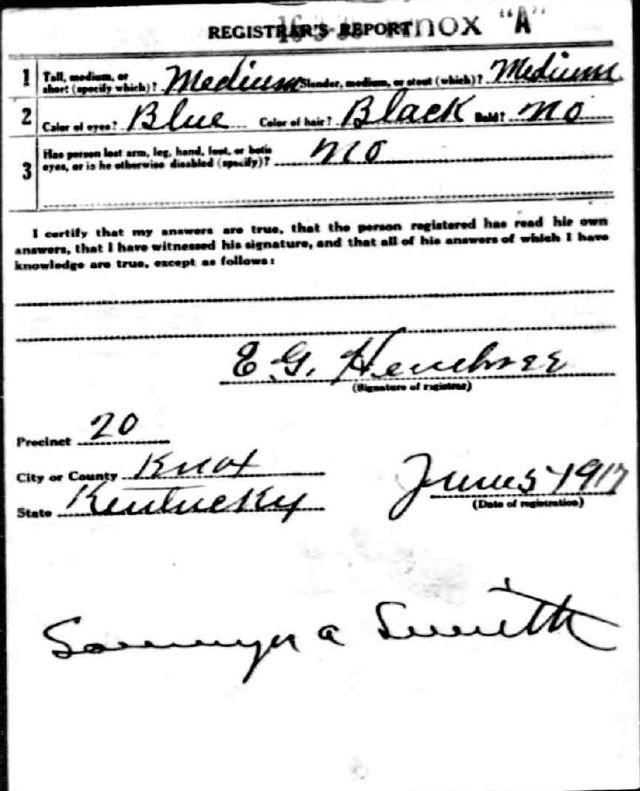 REGISTRAR'S REPORT nox "A"
1 Tall, medium, or short (specify which)? Medium Slender, medium, or stout (which)? Medium
2 Color of eyes? Blue Color of hair? Black Bald? no
3 Has person lost arm, leg, hand, foot, or both eyes, or is he otherwise disabled (specify)? no
I certify that my answers are true, that the person registered has read his own
answers, that I have witnessed his signature, and that all of his answers of which I have
knowledge are true, except as follows:
E G.
(Signature of registrar)
Precinct 20
City or County Knox
State Kentucky
June 5 1917
(Date of registration)
a Smith